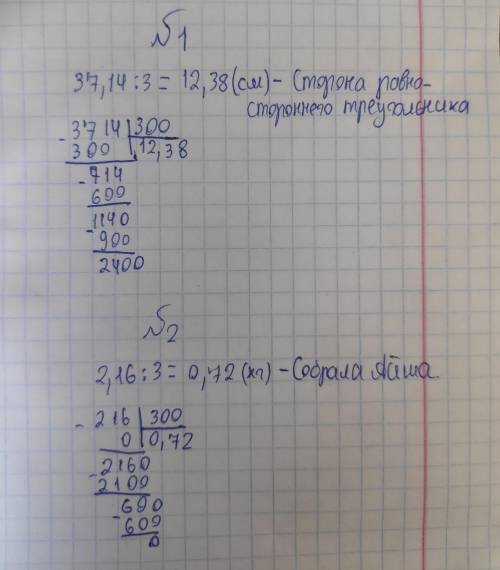 №1
37,14:3= 12,38(см)- Сторона равно-
стороннего треугольника
- 3714 300
300 12,38
- 714
600
- 1140
900
2400
№2
2,16:3= 0,72(кг) - Собрала Айша.
- 216 300
0 0,72
- 2160
2100
- 600
600
0